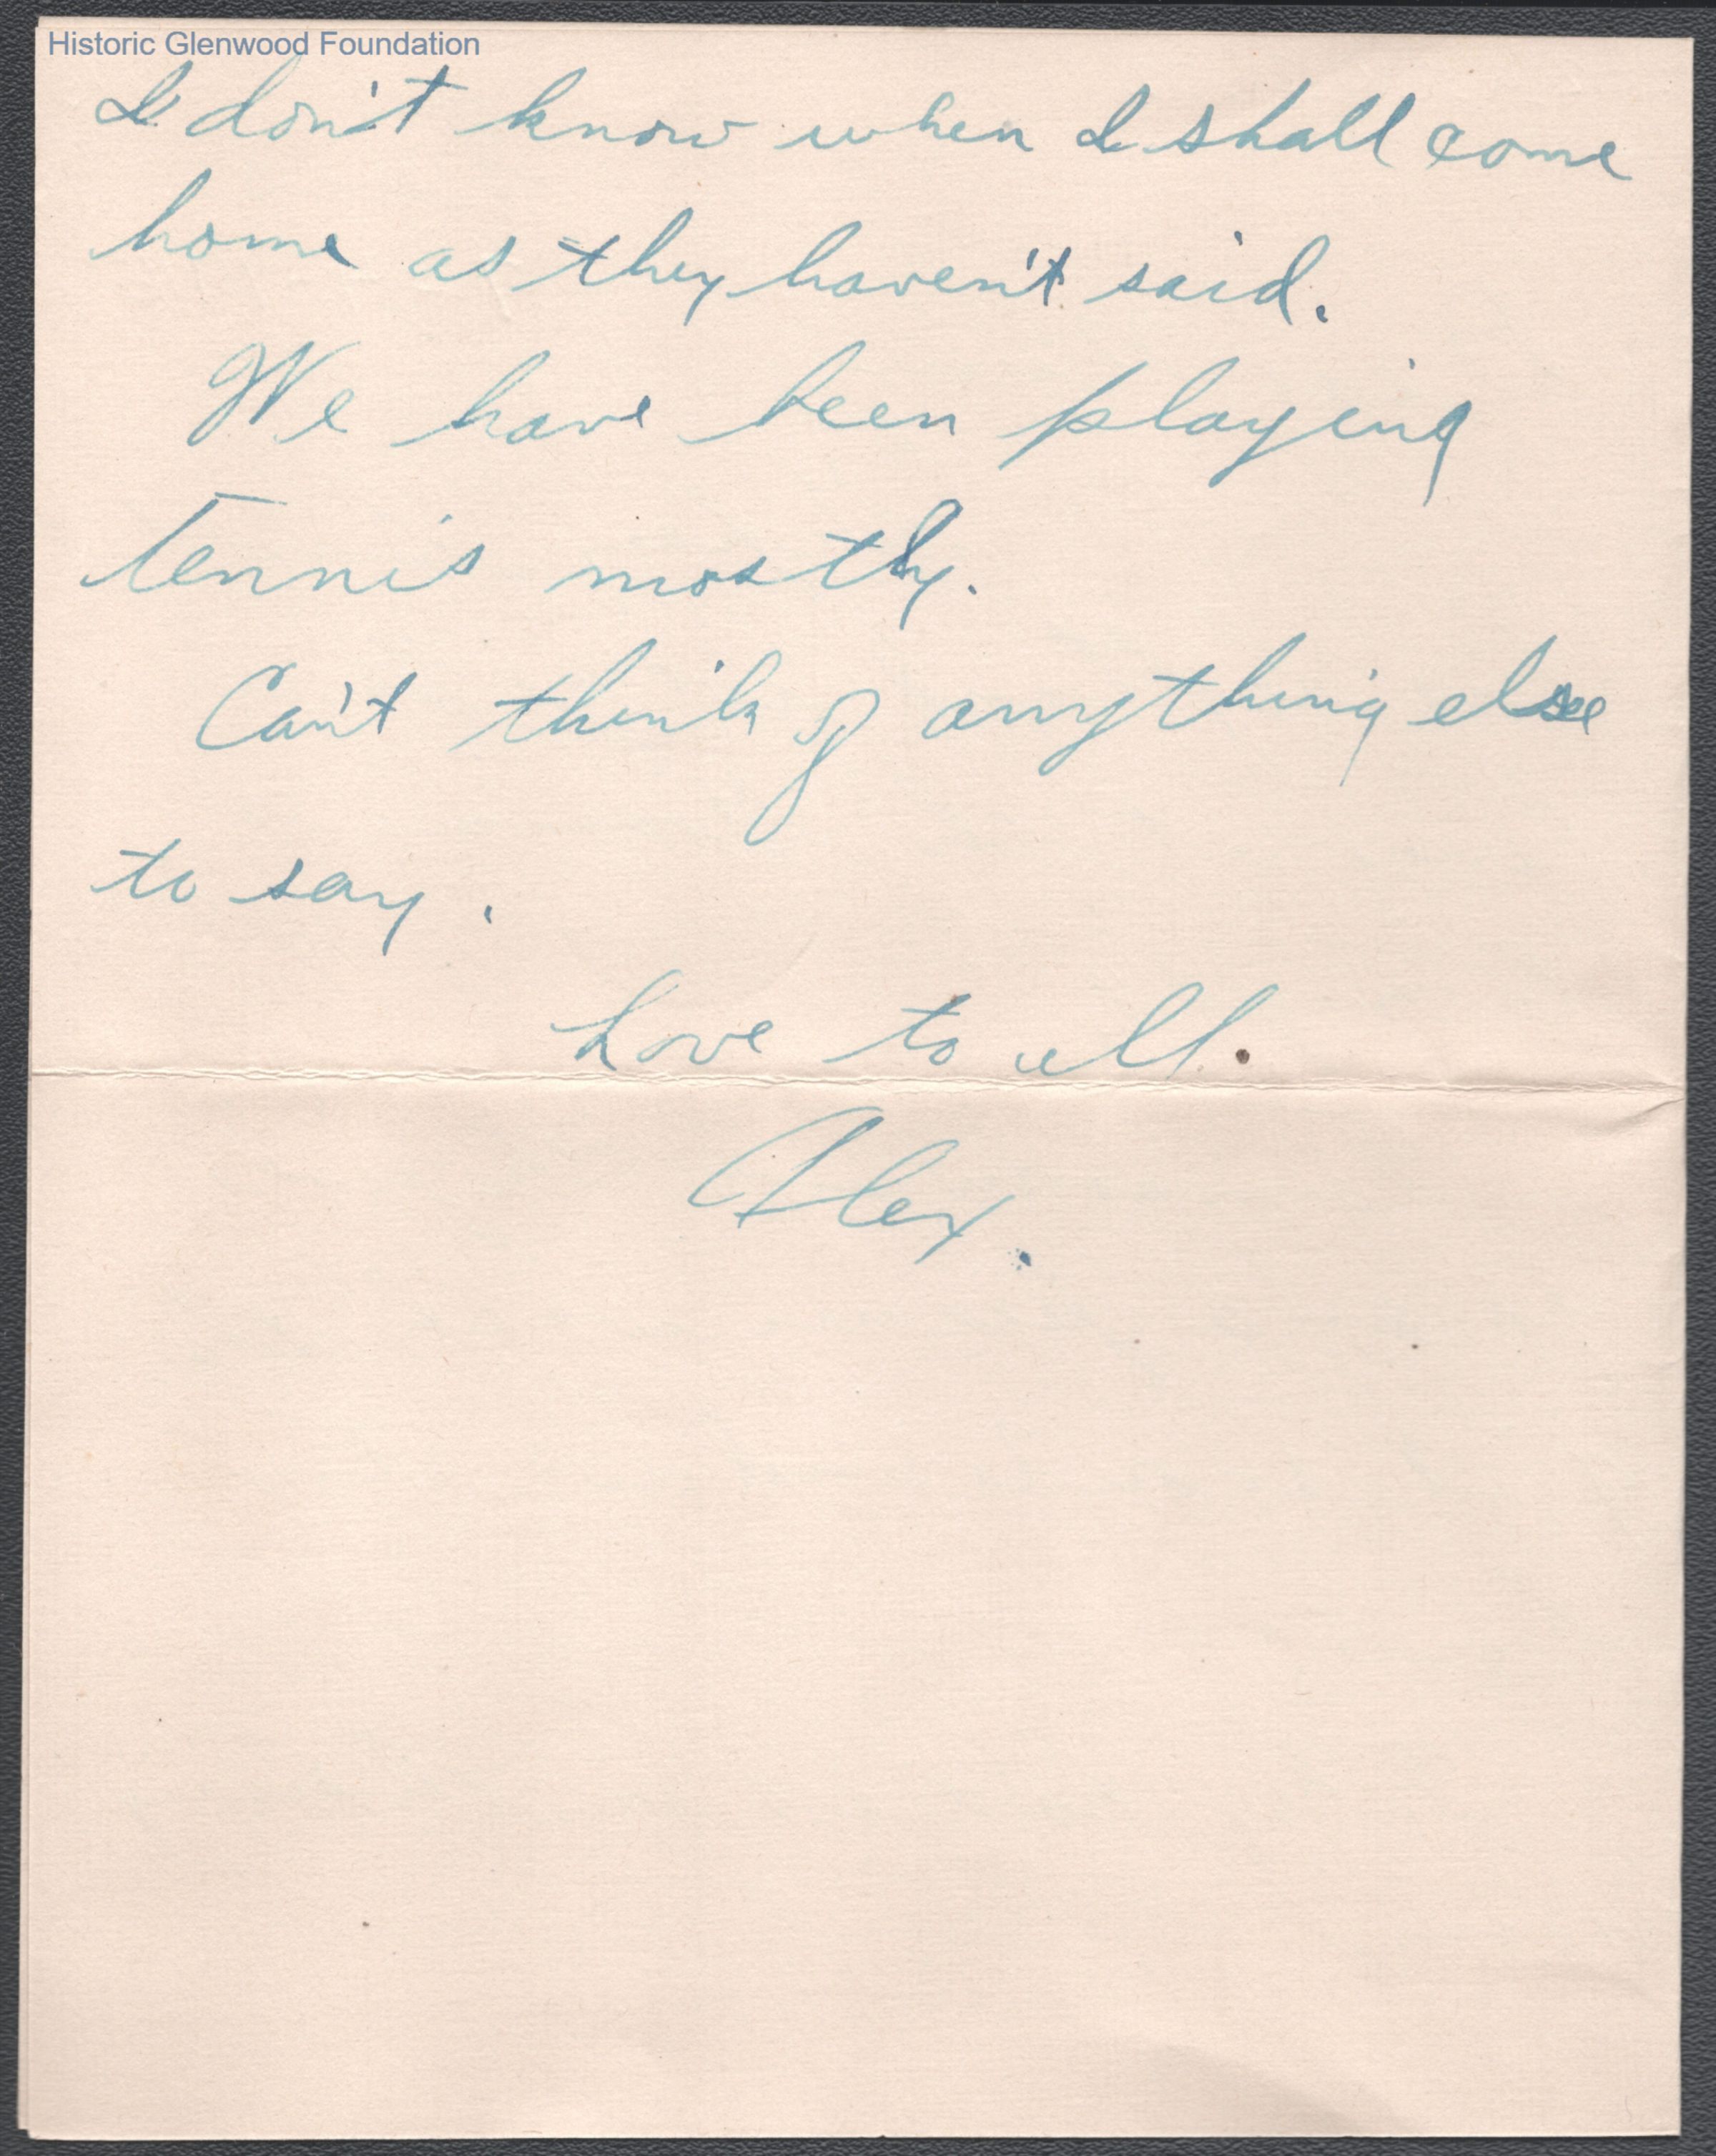 Historic Glenwood Foundation
I don't know when I shall come
home as they haven't said.
We have been playing
tennis mostly.
Can't think of anything else
to say.
Love to all.
Alex.